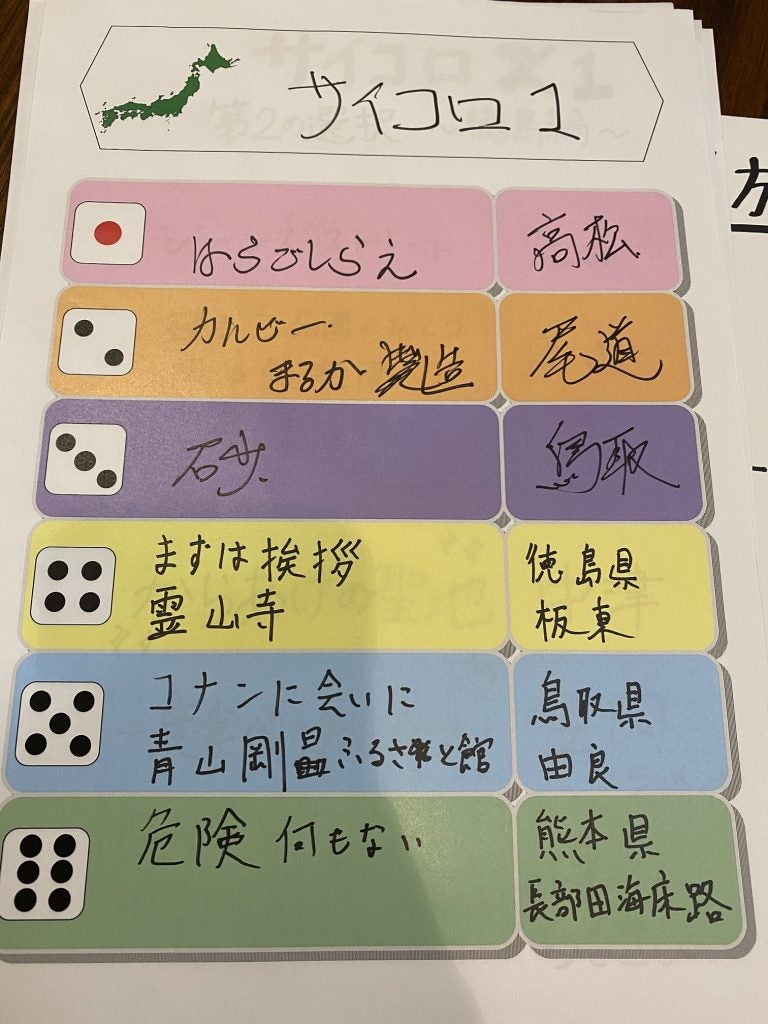 サイコロ1
はらごしらえ
高松
カルビー
まるか 製造
尾道
石少
鳥取
まずは挨拶
霊山寺
徳島県
板東
コナンに会いに
青山剛昌ふるさと館
鳥取県
由良
危険 何もない
熊本県
長部田海床路
カ